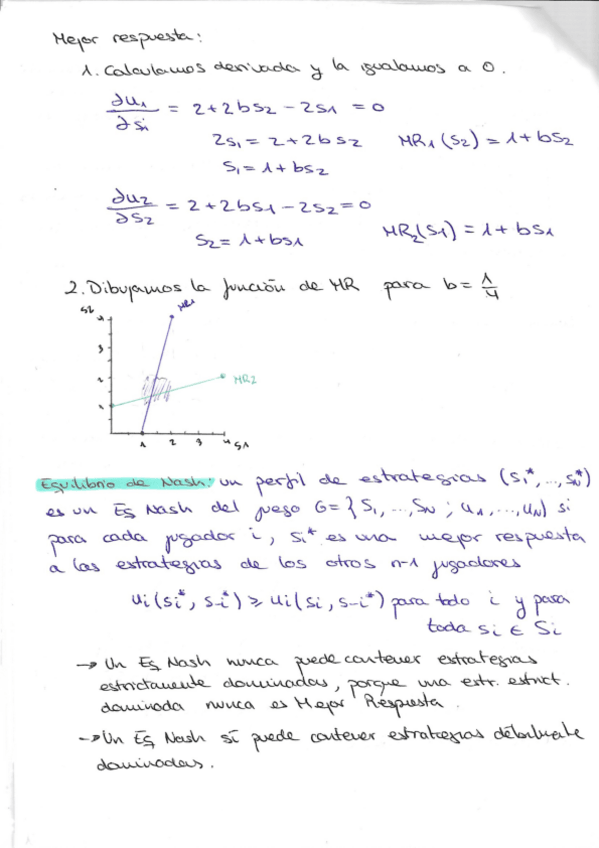 Mejor respuesta:
1. Calculamos derivada y la igualamos a 0.
∂u1/∂si = 2+2bs2-2s1 = 0
2s1 = 2+2bs2 MR1(s2) = 1+bs2
s1 = 1+bs2
∂u2/∂s2 = 2+2bs1-2s2=0
s2 = 1+bs1 MR2(s1) = 1+bs1
2. Dibujamos la función de MR para b = 1/4
s2 MR1
4
3
2 MR2
1
1 2 3 4 s1
Equilibrio de Nash: un perfil de estrategias (si*, ..., sn*)
es un Eq Nash del juego G={S1, ..., SN ; u1, ..., uN} si
para cada jugador i, si* es una mejor respuesta
a las estrategias de los otros n-1 jugadores
ui(si*, s-i*) ≥ ui(si, s-i*) para todo i y para
toda si ∈ Si
→ Un Eq Nash nunca puede contener estrategias
estrictamente dominadas, porque una estr. estrict.
dominada nunca es Mejor Respuesta.
→ Un Eq Nash sí puede contener estrategias débilmente
dominadas.